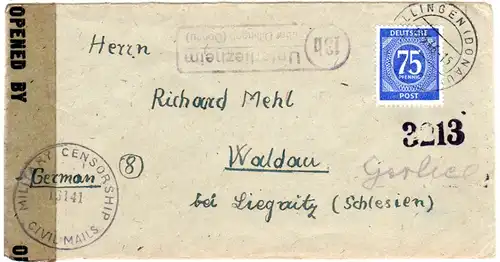 OPENED BY
Herrn
13b
Unterliezheim
über Dillingen (Donau)
DILLINGEN (DONAU)
DEUTSCHE
75
PFENNIG
POST
Richard Mehl
3213
Waldau
bei Liegnitz (Schlesien)
8
German
MILITARY CENSORSHIP
16141
CIVIL MAILS